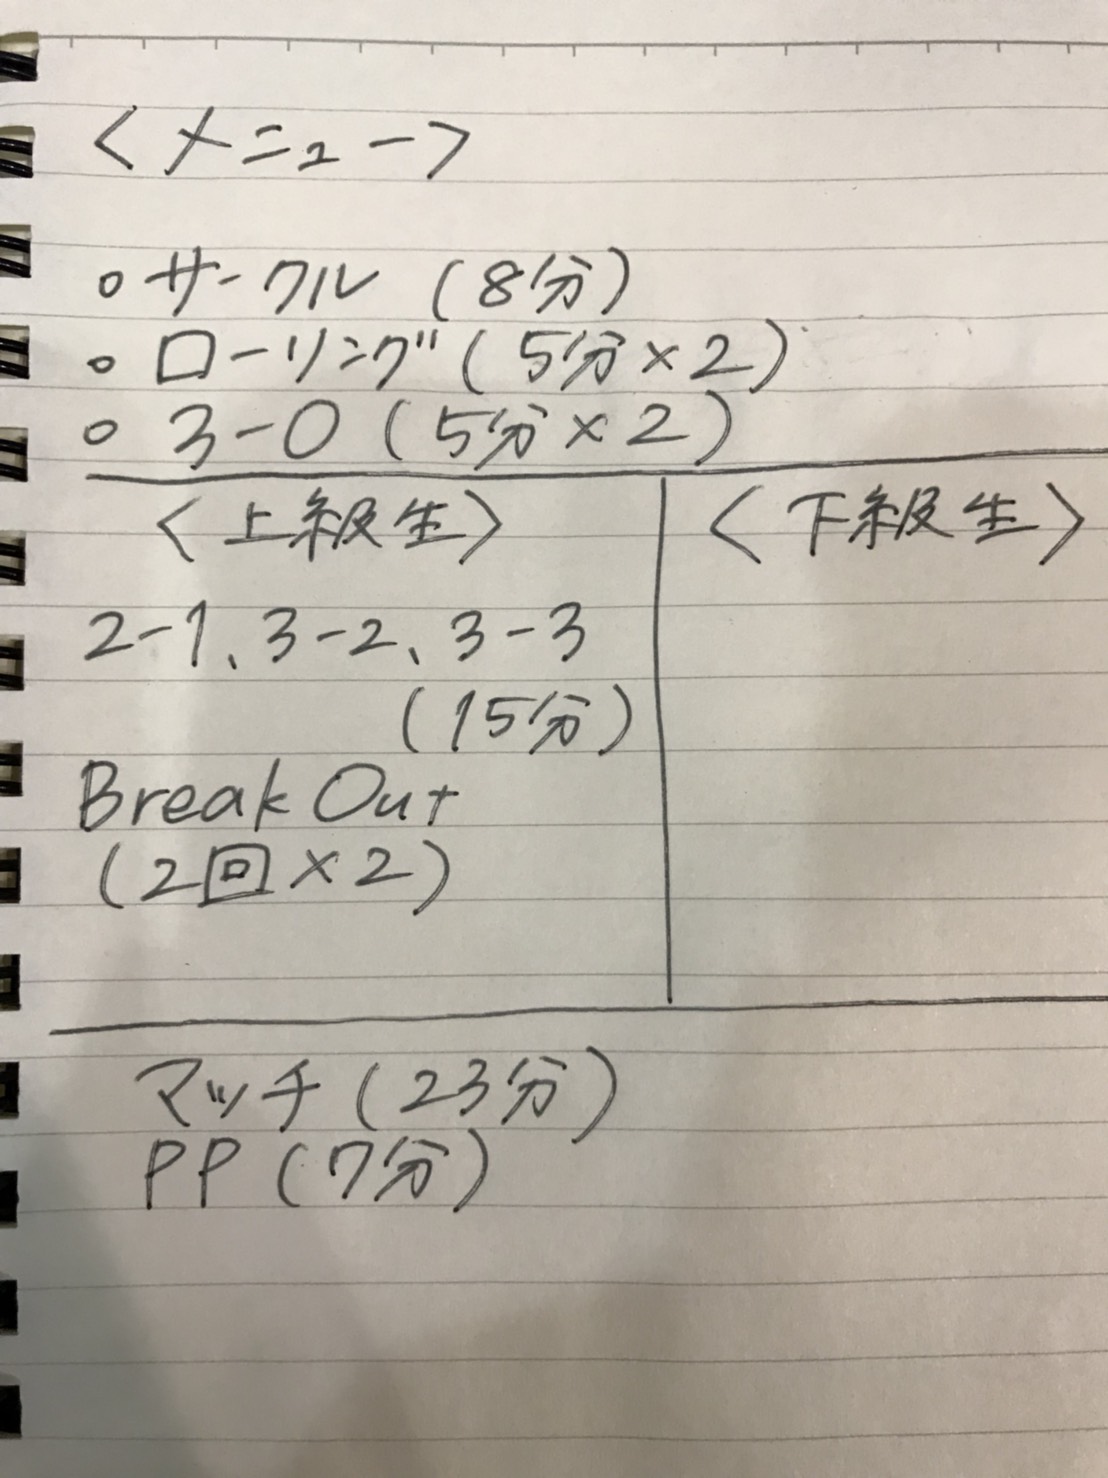 <メニュー>
○ サークル (8分)
○ ローリング (5分×2)
○ 3-0 (5分×2)
<上級生>
<下級生>
2-1、3-2、3-3
(15分)
Break Out
(2回×2)
マッチ (23分)
PP (7分)